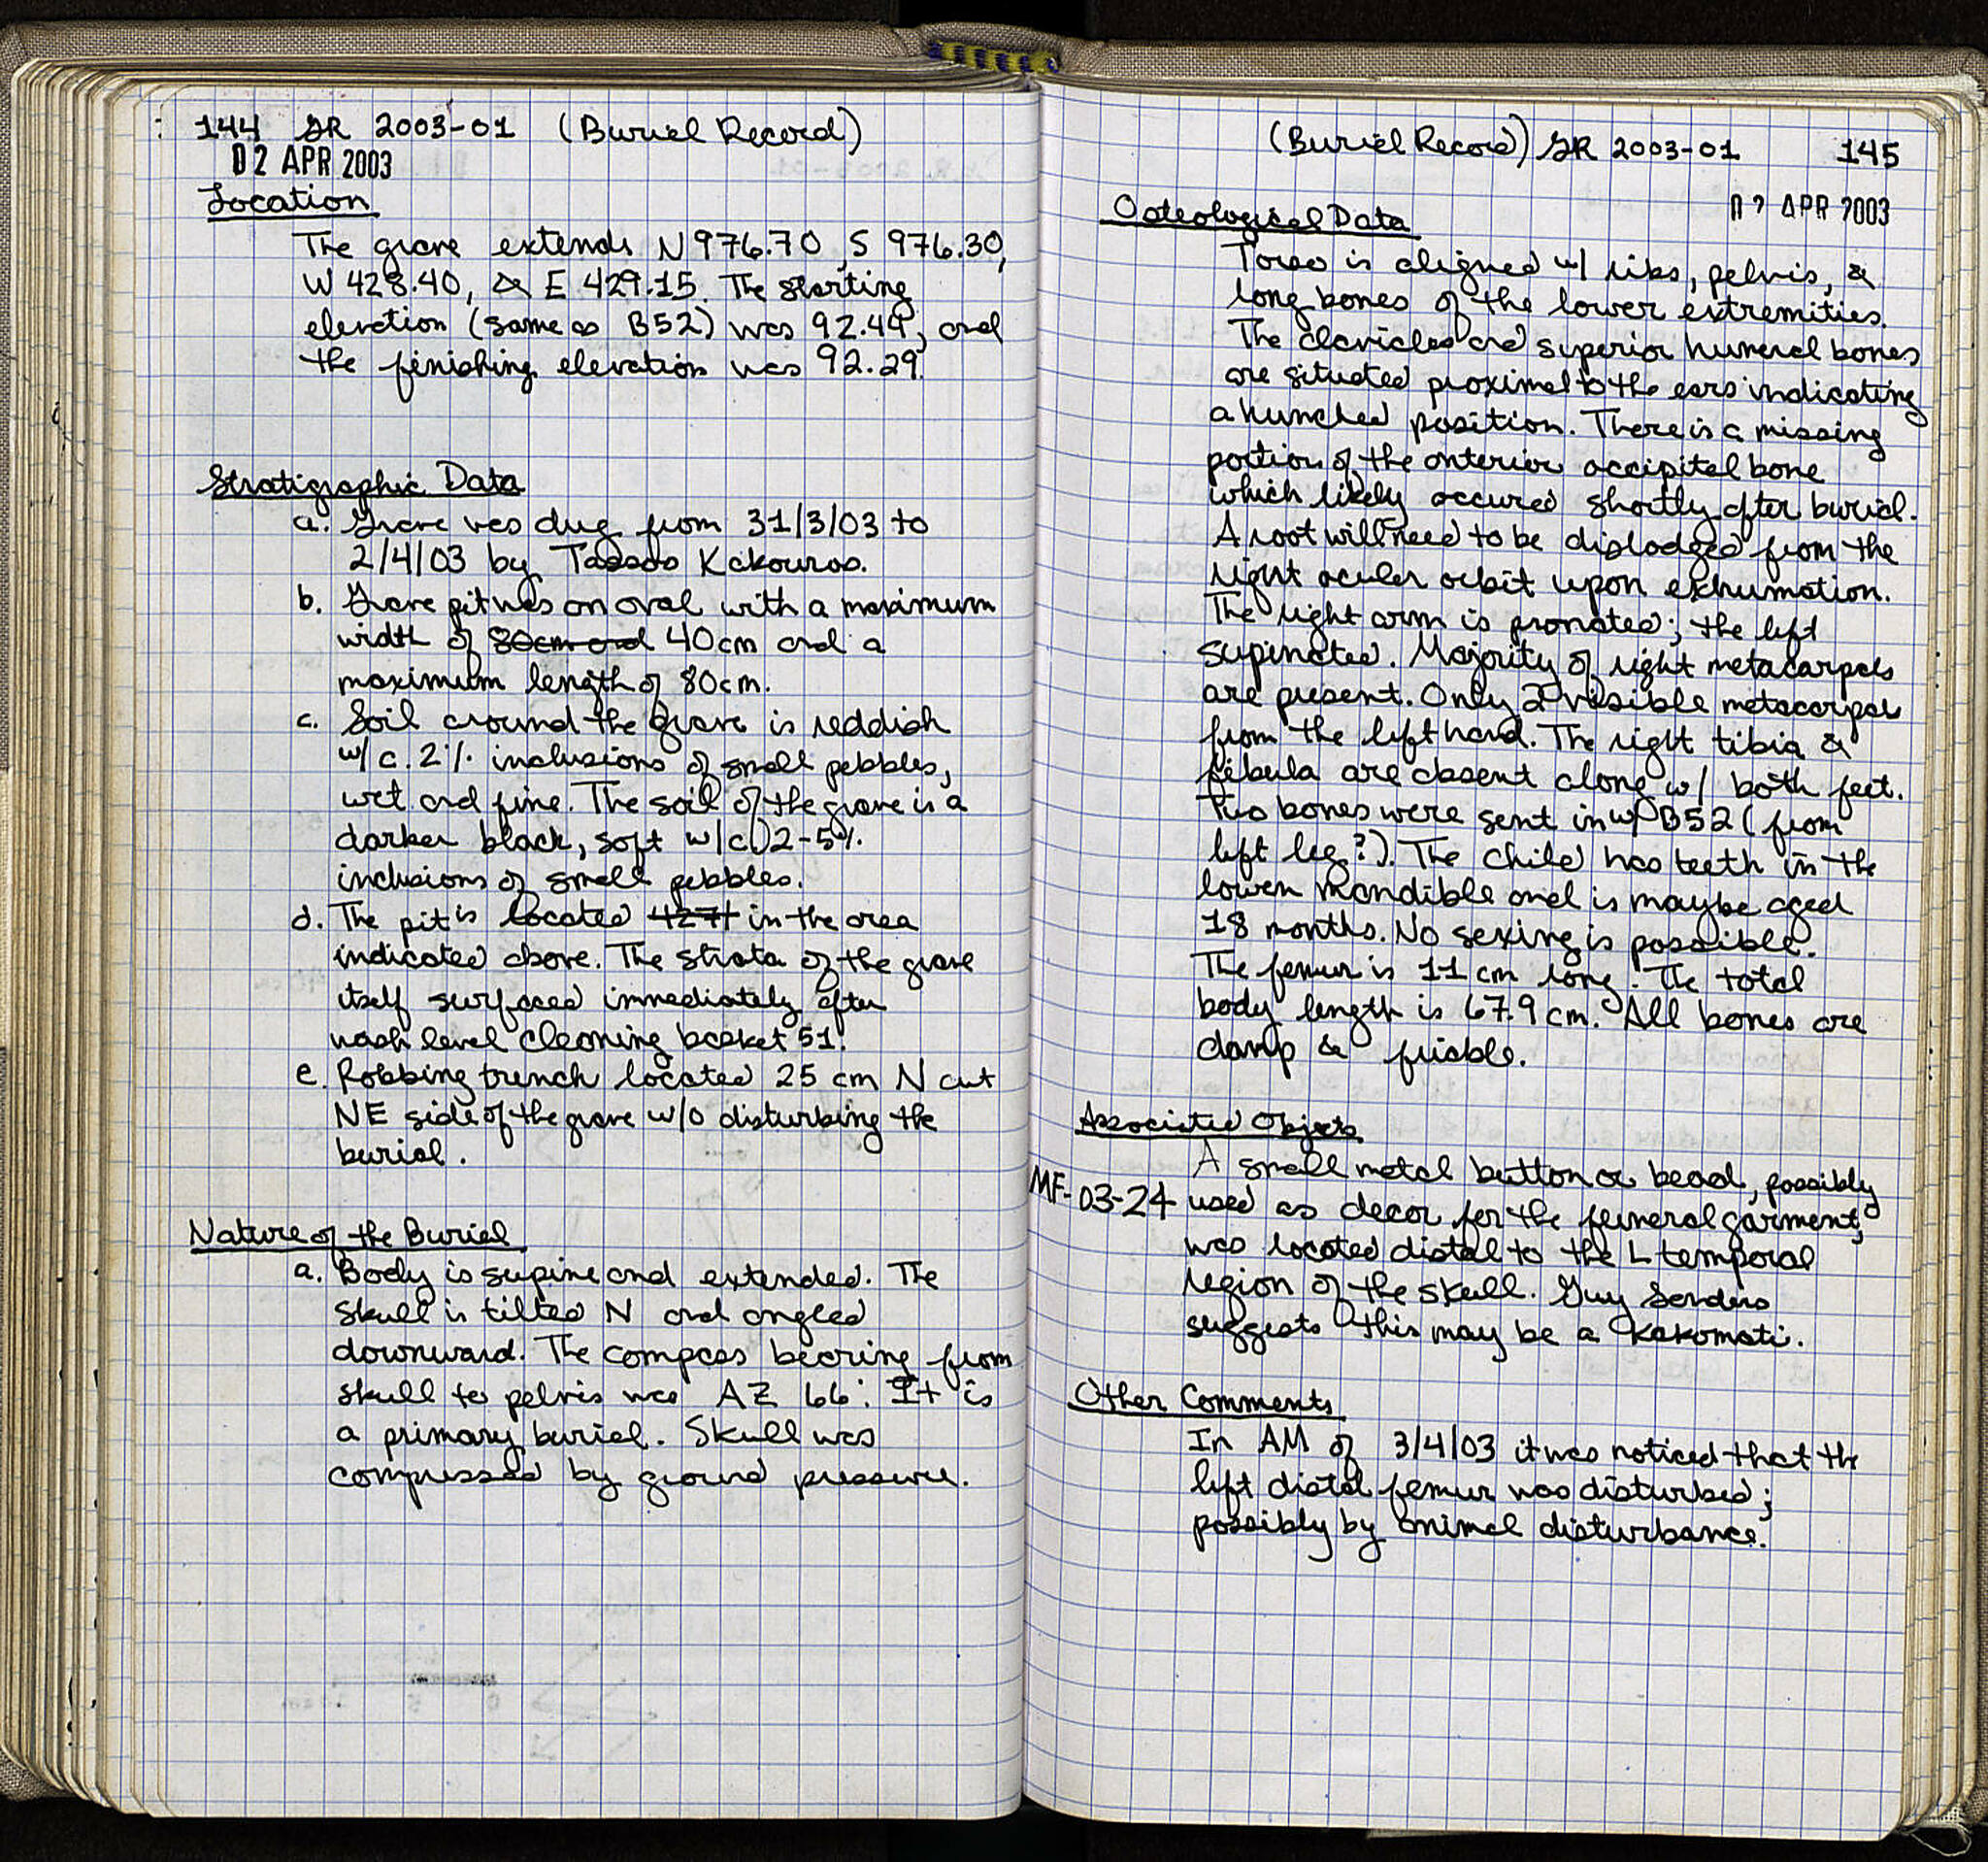 144 GR 2003-01 (Burial Record)
02 APR 2003
Location
The grave extends N 976.70, S 976.30,
W 428.40, & E 429.15. The starting
elevation (same as B52) was 92.44, and
the finishing elevation was 92.29.
Stratigraphic Data
a. Grave was dug from 31/3/03 to
2/4/03 by Tassos Kakouros.
b. Grave pit was an oval with a maximum
width of 80cm and 40cm and a
maximum length of 80cm.
c. Soil around the grave is reddish
w/ c. 2% inclusions of small pebbles,
wet and fine. The soil of the grave is a
darker black, soft w/ c. 2-5%
inclusions of small pebbles.
d. The pit is located in the area
indicated above. The strata of the grave
itself surfaced immediately after
wash level cleaning basket 51.
e. Robbing trench located 25 cm N cut
NE side of the grave w/o disturbing the
burial.
Nature of the Burial
a. Body is supine and extended. The
skull is tilted N and angled
downward. The compass bearing from
skull to pelvis was AZ 66°. It is
a primary burial. Skull was
compressed by ground pressure.
(Burial Record) GR 2003-01 145
02 APR 2003
Osteological Data
Torso is aligned w/ ribs, pelvis, &
long bones of the lower extremities.
The clavicles and superior humeral bones
are situated proximal to the ears indicating
a hunched position. There is a missing
portion of the anterior occipital bone
which likely occured shortly after burial.
A root will need to be dislodged from the
right ocular orbit upon exhumation.
The right arm is pronated; the left
supinated. Majority of right metacarpals
are present. Only 2 visible metacarpals
from the left hand. The right tibia &
fibula are absent along w/ both feet.
Two bones were sent in w/ B52 (from
left leg?). The child has teeth in the
lower mandible and is maybe aged
18 months. No sexing is possible.
The femur is 11 cm long. The total
body length is 67.9 cm. All bones are
damp & friable.
Associated Objects
A small metal button or bead, possibly
MF-03-24 used as decor for the funeral garment,
was located distal to the L temporal
region of the skull. Guy Sanders
suggests this may be a kakomati.
Other Comments
In AM of 3/4/03 it was noticed that the
left distal femur was disturbed;
possibly by animal disturbance.